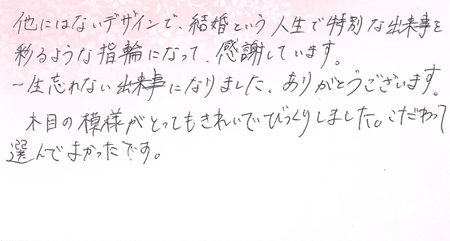 他にはないデザインで、結婚という人生で特別な出来事を
彩るような指輪になって、感謝しています。
一生忘れない出来事になりました、ありがとうございます。
木目の模様がとってもきれいでびっくりしました。こだわって
選んでよかったです。